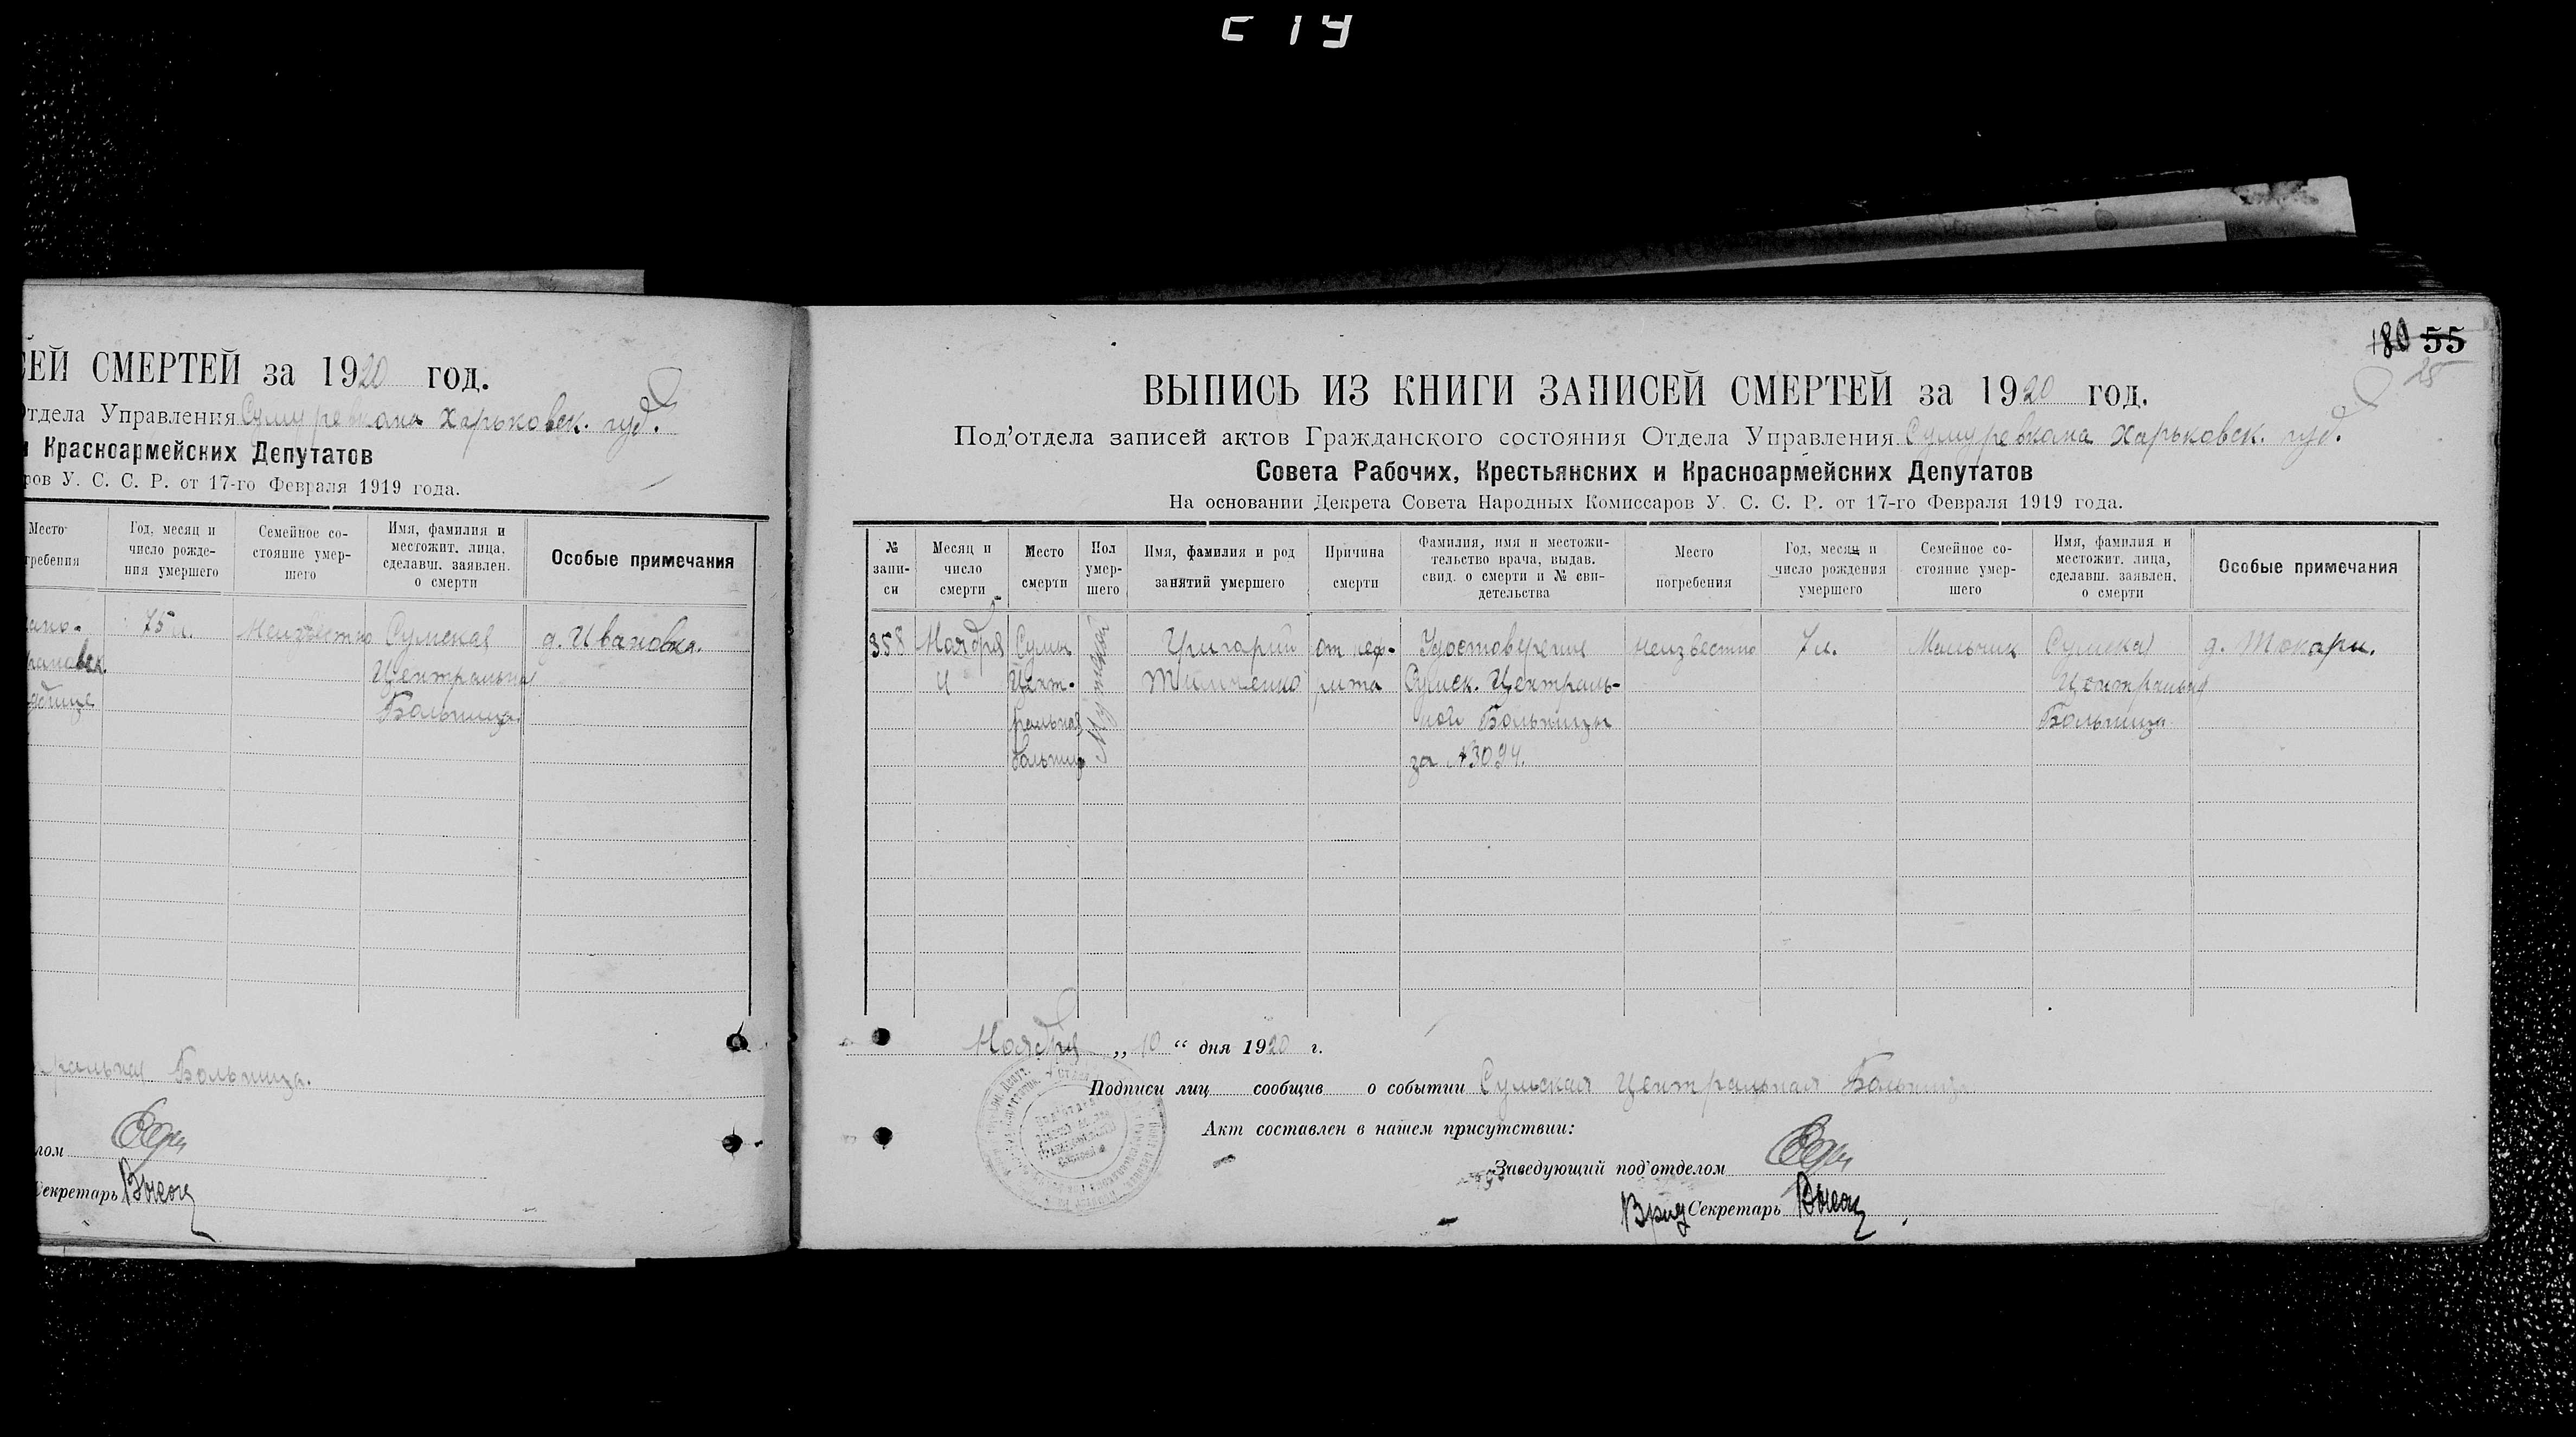 С 19
СЕЙ СМЕРТЕЙ за 1920 год.
Отдела Управления Сумуревкома Харьковск. губ.
и Красноармейских Депутатов
ров У. С. С. Р. от 17-го Февраля 1919 года.
Место
гребения
Год, месяц и
число рожде-
ния умершего
Семейное со-
стояние умер-
шего
Имя, фамилия и
местожит. лица,
сделавш. заявлен.
о смерти
Особые примечания
75 л.
Неизвестно
Сумская
Центральная
Больница.
д. Ивановка.
ральная Больница.
лом
Секретарь
180 55
25
ВЫПИСЬ ИЗ КНИГИ ЗАПИСЕЙ СМЕРТЕЙ за 1920 год.
Под'отдела записей актов Гражданского состояния Отдела Управления Сумуревкома Харьковск. губ.
Совета Рабочих, Крестьянских и Красноармейских Депутатов
На основании Декрета Совета Народных Комиссаров У. С. С. Р. от 17-го Февраля 1919 года.
№
запи-
си
Месяц и
число
смерти
Место
смерти
Пол
умер-
шего
Имя, фамилия и род
занятий умершего
Причина
смерти
Фамилия, имя и местожи-
тельство врача, выдав.
свид. о смерти и № сви-
детельства
Место
погребения
Год, месяц и
число рождения
умершего
Семейное со-
стояние умер-
шего
Имя, фамилия и
местожит. лица,
сделавш. заявлен.
о смерти
Особые примечания
358
Ноября
4
Сумы
Цент-
ральная
больниц
Мужской
Григорий
Тимченко
от неф-
рита
Удостоверение
Сумск. Централь-
ной Больницы
за №3094.
неизвестно
7 л.
Мальчик
Сумская
Центральная
Больница
д. Токари.
Ноября „ 10 “ дня 1920 г.
Подписи лиц сообщив о событии Сумская Центральная Больница
Акт составлен в нашем присутствии:
Заведующий под'отделом
Врид Секретарь